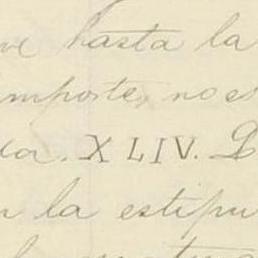 ve hasta la
importe, no es
cia. XLIV. L
n la estipu